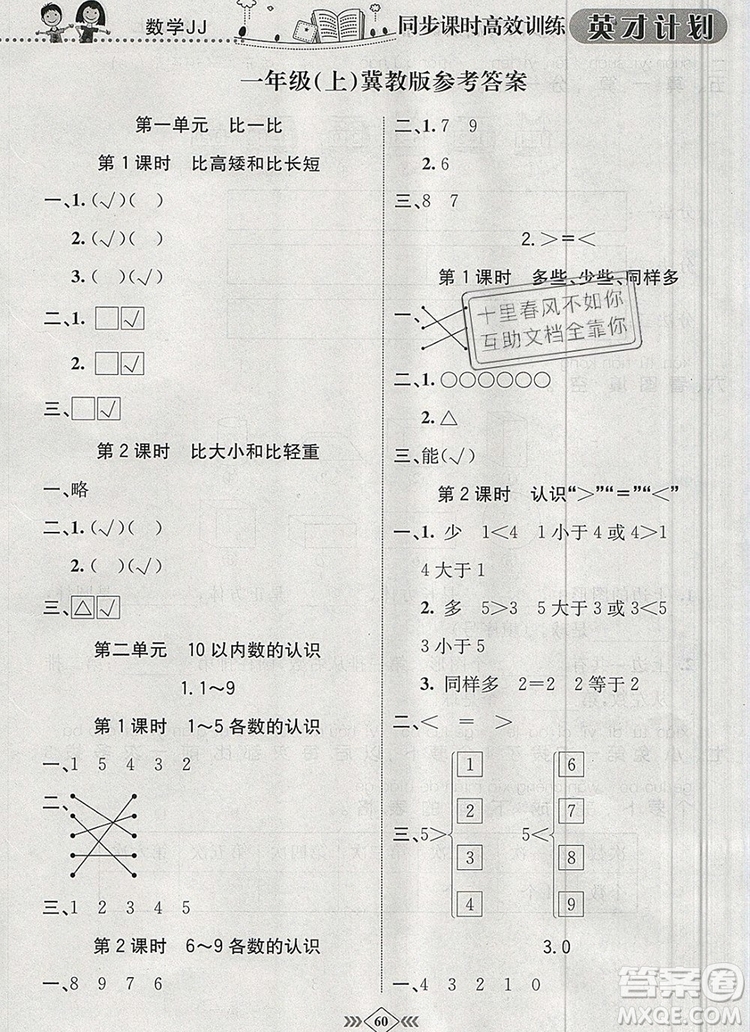 数学JJ
同步课时高效训练
英才计划
一年级(上)冀教版参考答案
第一单元 比一比
第1课时 比高矮和比长短
一、1.(√)( )
2.(√)( )
3.( )(√)
二、1.□☑
2.□☑
三、□☑
第2课时 比大小和比轻重
一、略
二、1.(√)( )
2.( )(√)
三、△√
第二单元 10以内数的认识
1.1~9
第1课时 1~5各数的认识
一、1 5 4 3 2
二、
三、1 2 3 4 5
第2课时 6~9各数的认识
一、8 9 7 6
二、1.7 9
2.6
三、8 7
2.>=<
第1课时 多些、少些、同样多
一、
十里春风不如你
互助文档全靠你
二、1.○○○○○○
2.△
三、能(√)
第2课时 认识“>”“=”“<”
一、1.少 1<4 1小于4或4>1
4大于1
2.多 5>3 5大于3或3<5
3小于5
3.同样多 2=2 2等于2
二、< = >
三、5> 1 2 3 4 5< 6 7 8 9
3.0
一、4 3 2 1 0
60
答案圈
MXQE.COM